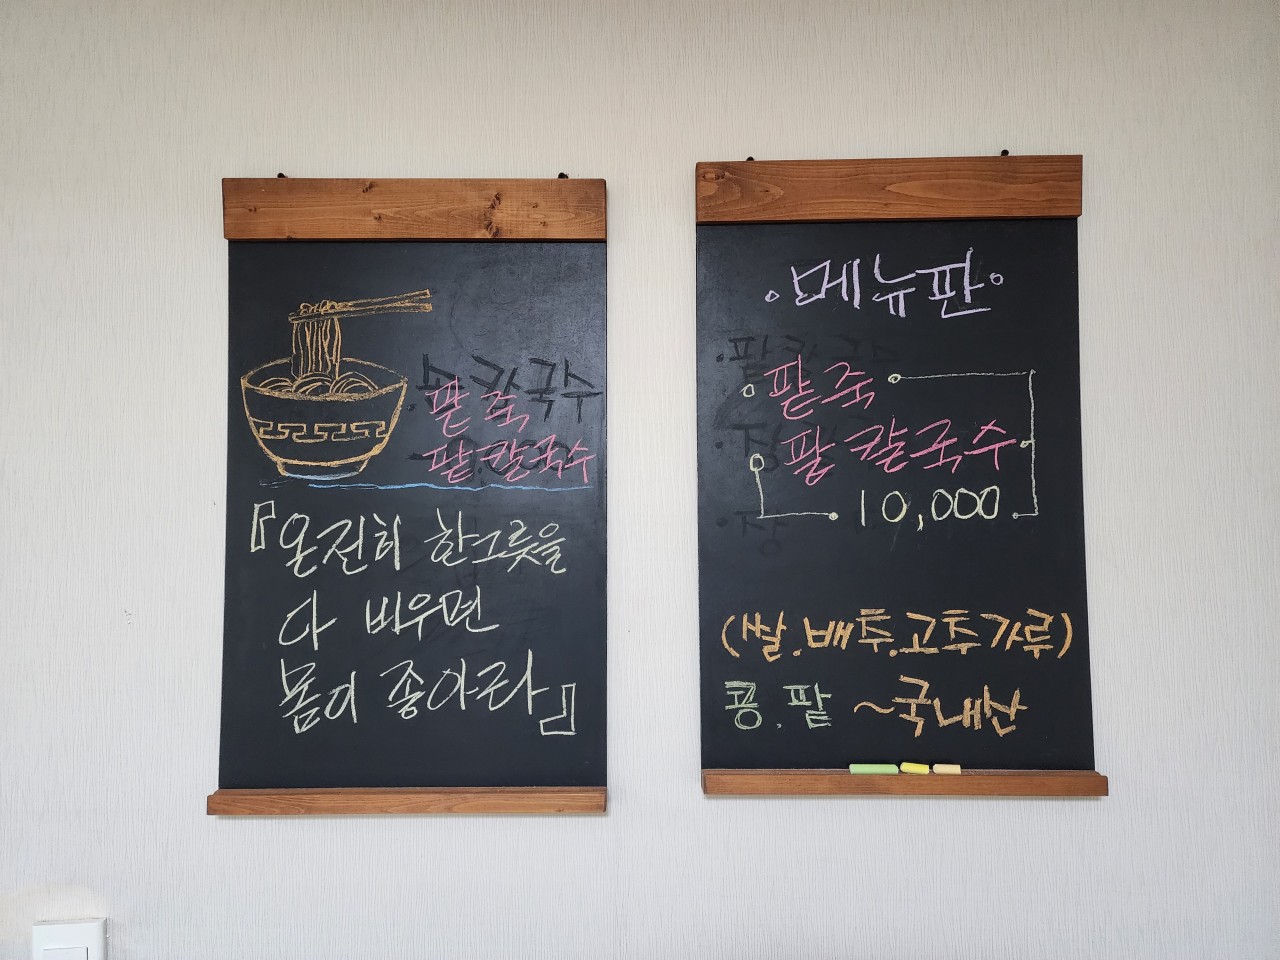 팥죽
팥칼국수
『온전히 한그릇을
다 비우면
몸이 좋아라』
메뉴판
팥죽
팥 칼국수
10,000
(쌀.배추.고추가루)
콩.팥 ~국내산